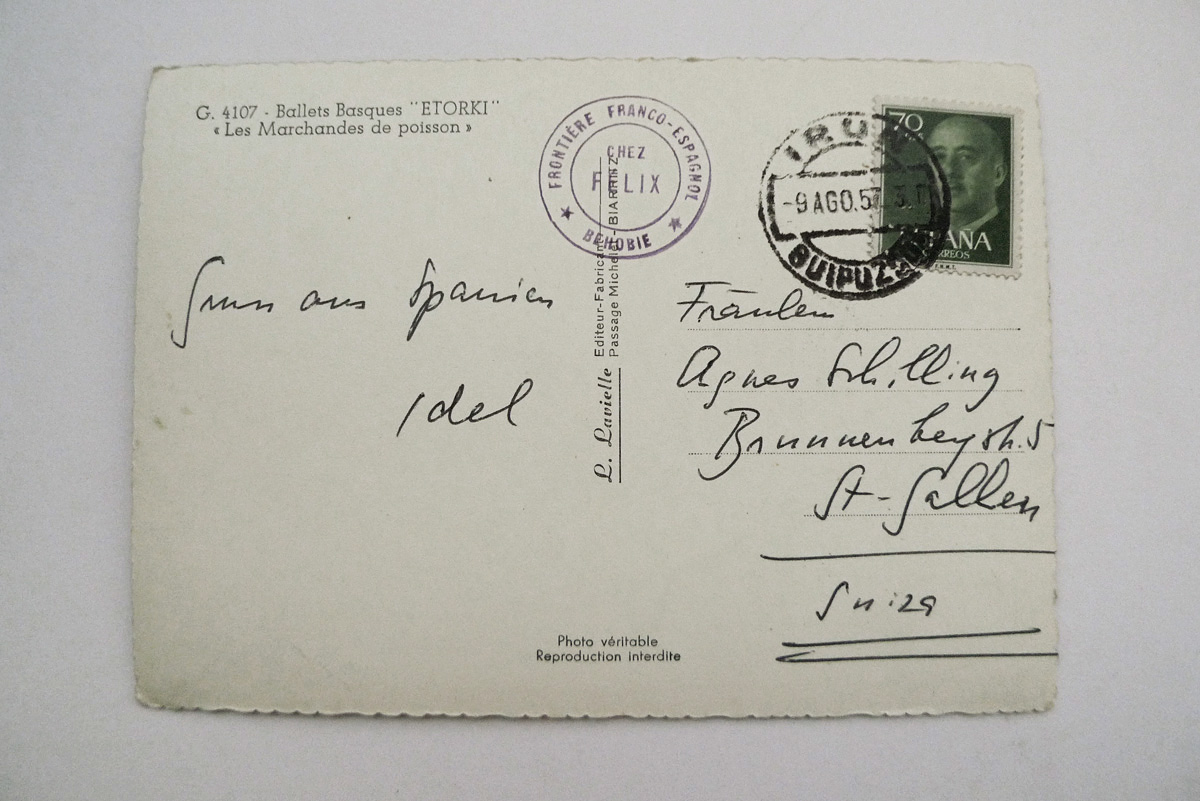 G. 4107 - Ballets Basques "ETORKI"
« Les Marchandes de poisson »
FRONTIÈRE FRANCO-ESPAGNOL
CHEZ
FELIX
★ BÉHOBIE ★
IRUN
-9 AGO.57
GUIPUZ
70
ESPAÑA
CORREOS
Gruss aus Spanien
Idel
L. Lavielle Editeur-Fabricant
Passage Michelet - BIARRITZ
Fräulein
Agnes Schilling
Brunnenbergstr. 5
St-Gallen
Suiza
Photo véritable
Reproduction interdite